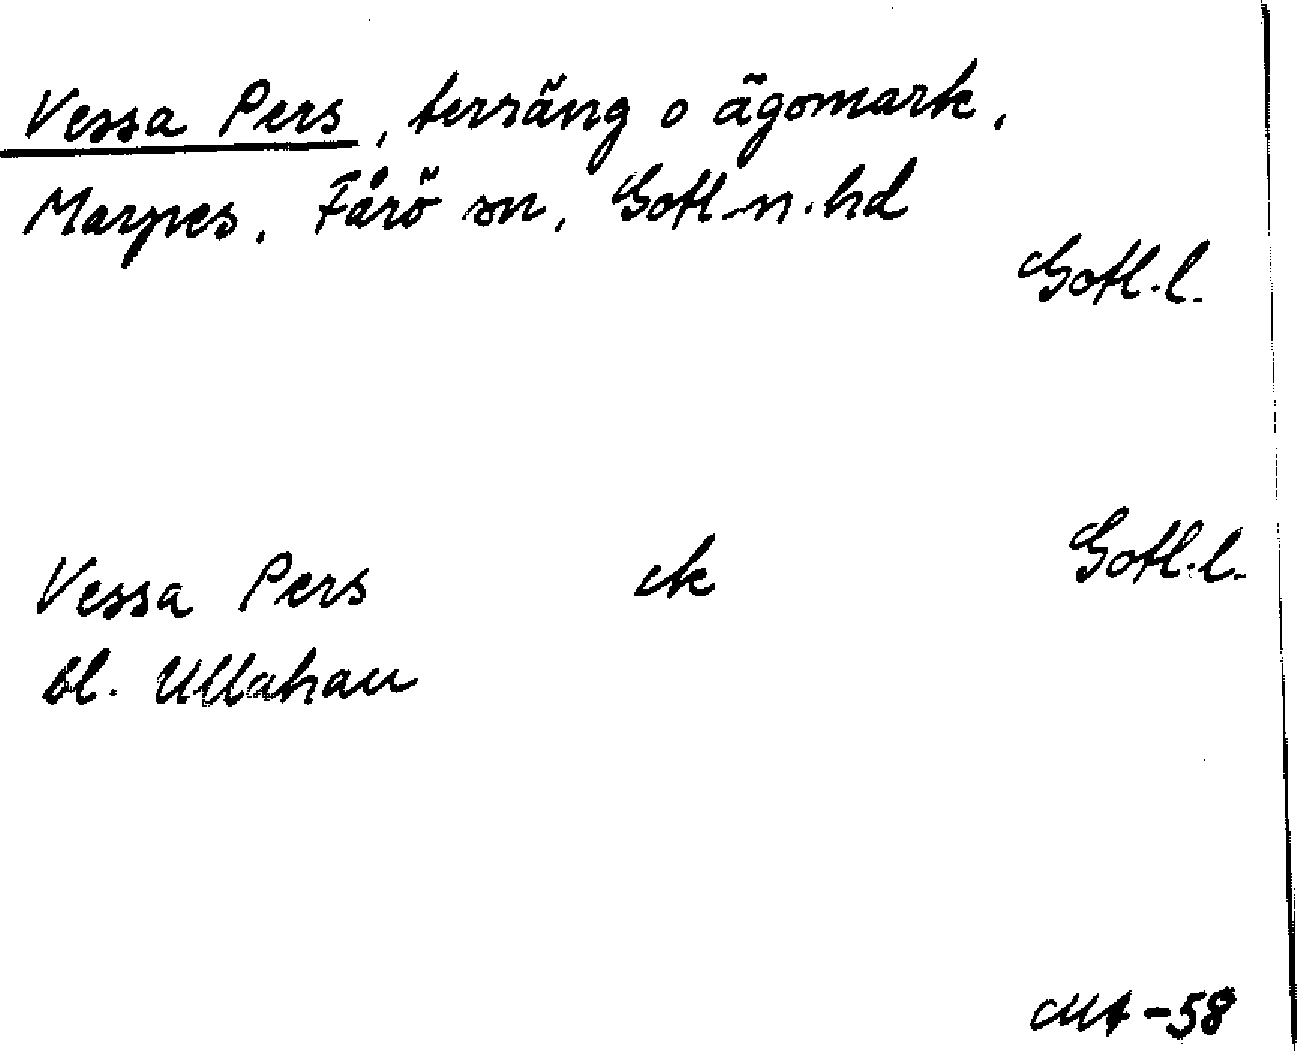 Vessa Pers, terräng o ägomark,
Marpes, Fårö sn, Gotl. n. hd
Gotl. l.
Vessa Pers ek Gotl. l.
bl. Ullahau
-58